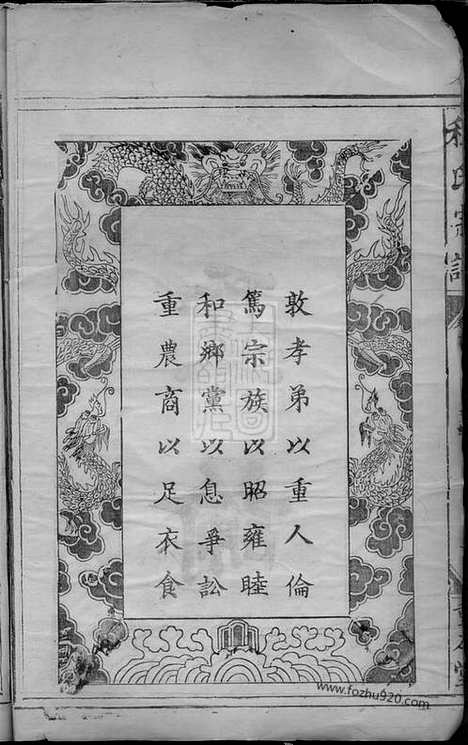 敦孝弟以重人倫
篤宗族以昭雍睦
和鄉黨以息爭訟
重農商以足衣食
氏宗譜
www.fozhu920.com